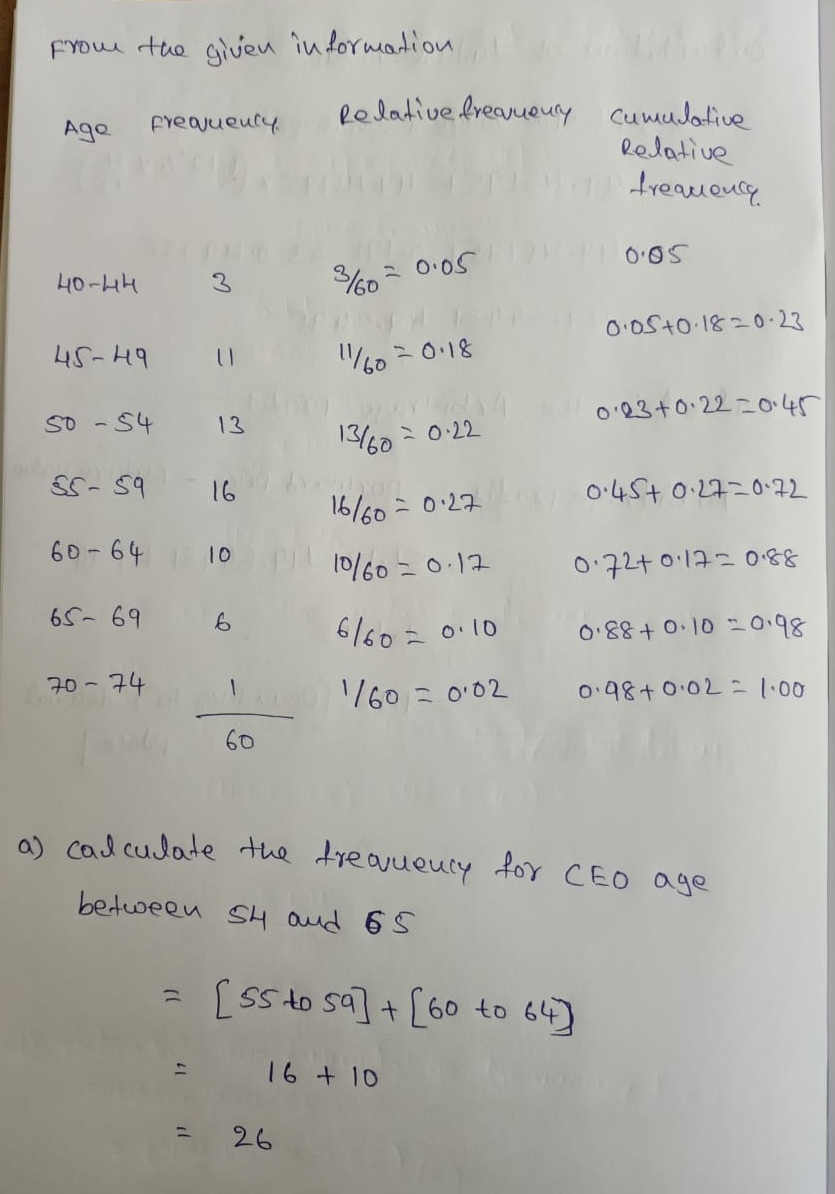 From the given information
Age Frequency Relative frequency Cumulative
Relative
frequency
40-44 3 3/60 = 0.05 0.05
45-49 11 11/60 = 0.18 0.05+0.18=0.23
50-54 13 13/60 = 0.22 0.23+0.22=0.45
55-59 16 16/60 = 0.27 0.45+0.27=0.72
60-64 10 10/60 = 0.17 0.72+0.17=0.88
65-69 6 6/60 = 0.10 0.88+0.10=0.98
70-74 1 1/60 = 0.02 0.98+0.02=1.00
60
a) calculate the frequency for CEO age
between 54 and 65
= [55 to 59] + [60 to 64]
= 16 + 10
= 26